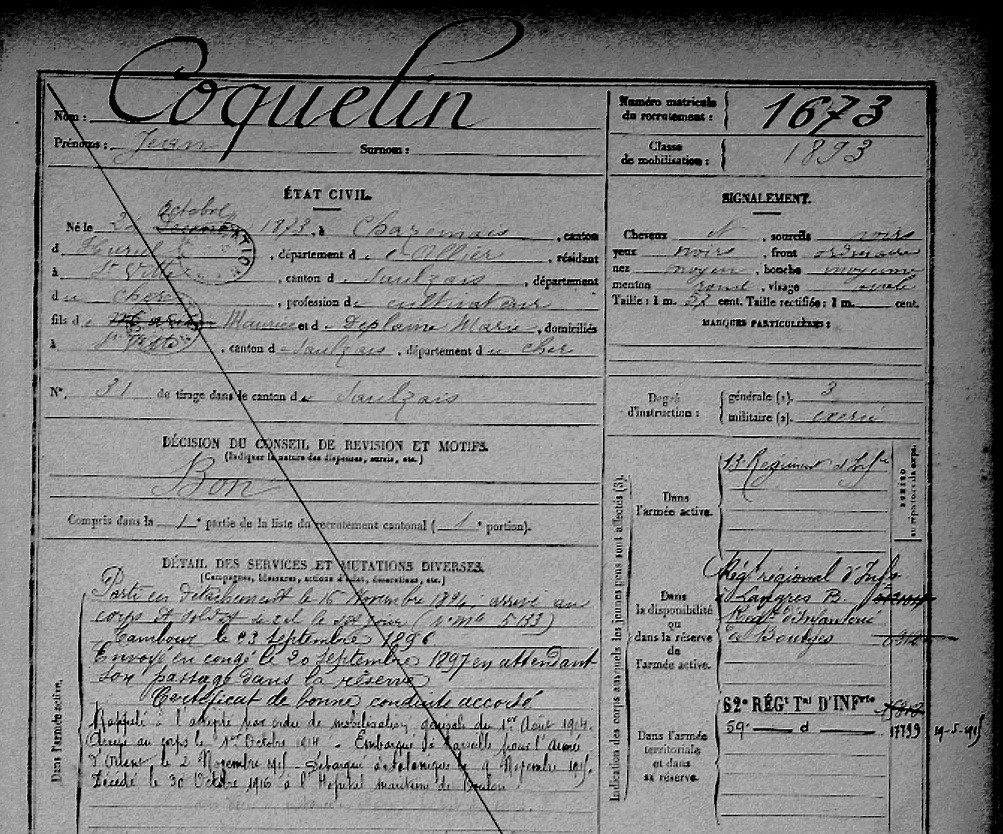 Coquelin
Nom :
Prénoms : Jean Surnom :
Numéro matricule
du recrutement : 1673
Classe
de mobilisation : 1893
ÉTAT CIVIL.
octobre
Né le 1873, à Chazemais, canton
d Huriel, département de l'Allier, résidant
à St Vitte, canton de Saulzais, département
du Cher, profession de cultivateur
fils de Maurice et de Deplaime Marie, domiciliés
à St Vitte, canton de Saulzais, département du Cher
N°. 31 de tirage dans le canton de Saulzais
DÉCISION DU CONSEIL DE REVISION ET MOTIFS.
(Indiquer la nature des dispenses, sursis, etc.)
Bon
Compris dans la 1e partie de la liste du recrutement cantonal (1e portion).
DÉTAIL DES SERVICES ET MUTATIONS DIVERSES.
(Campagnes, blessures, actions d'éclat, décorations, etc.)
Dans l'armée active.
Parti en détachement le 16 Novembre 1894; arrivé au
corps et soldat de 2el le dit jour (n° mle 5133)
Tambour le 23 Septembre 1896
Envoyé en congé le 20 Septembre 1897 en attendant
son passage dans la réserve
Certificat de bonne conduite accordé
Rappelé à l'activité par ordre de mobilisation générale du 1er Août 1914.
Arrivé au corps le 1er Octobre 1914 - Embarqué à Marseille pour l'Armée
d'Orient le 2 Novembre 1915 - Débarqué à Salonique le 9 Novembre 1915.
Décédé le 30 Octobre 1916 à l'Hôpital maritime de Toulon
SIGNALEMENT.
Cheveux et, sourcils noirs
yeux noirs, front ordinaire
nez moyen, bouche moyenne
menton rond, visage ovale
Taille : 1 m. 57 cent. Taille rectifiée : 1 m. cent.
MARQUES PARTICULIÈRES :
Degré
d'instruction :
générale (1). 3
militaire (2). exercé
Indication des corps auxquels les jeunes gens sont affectés (3).
Dans
l'armée active.
13e Régiment d'Infie
NUMÉRO
au répertoire du corps.
Dans
la disponibilité
ou
dans la réserve
de
l'armée active.
Régt régional d'Infie
à Langres B.
Régt d'Infanterie
de Bourges
Dans l'armée
territoriale
et dans
sa réserve.
62e RÉGt Tal D'INFrie
59e — d — 17799 19-5-1915